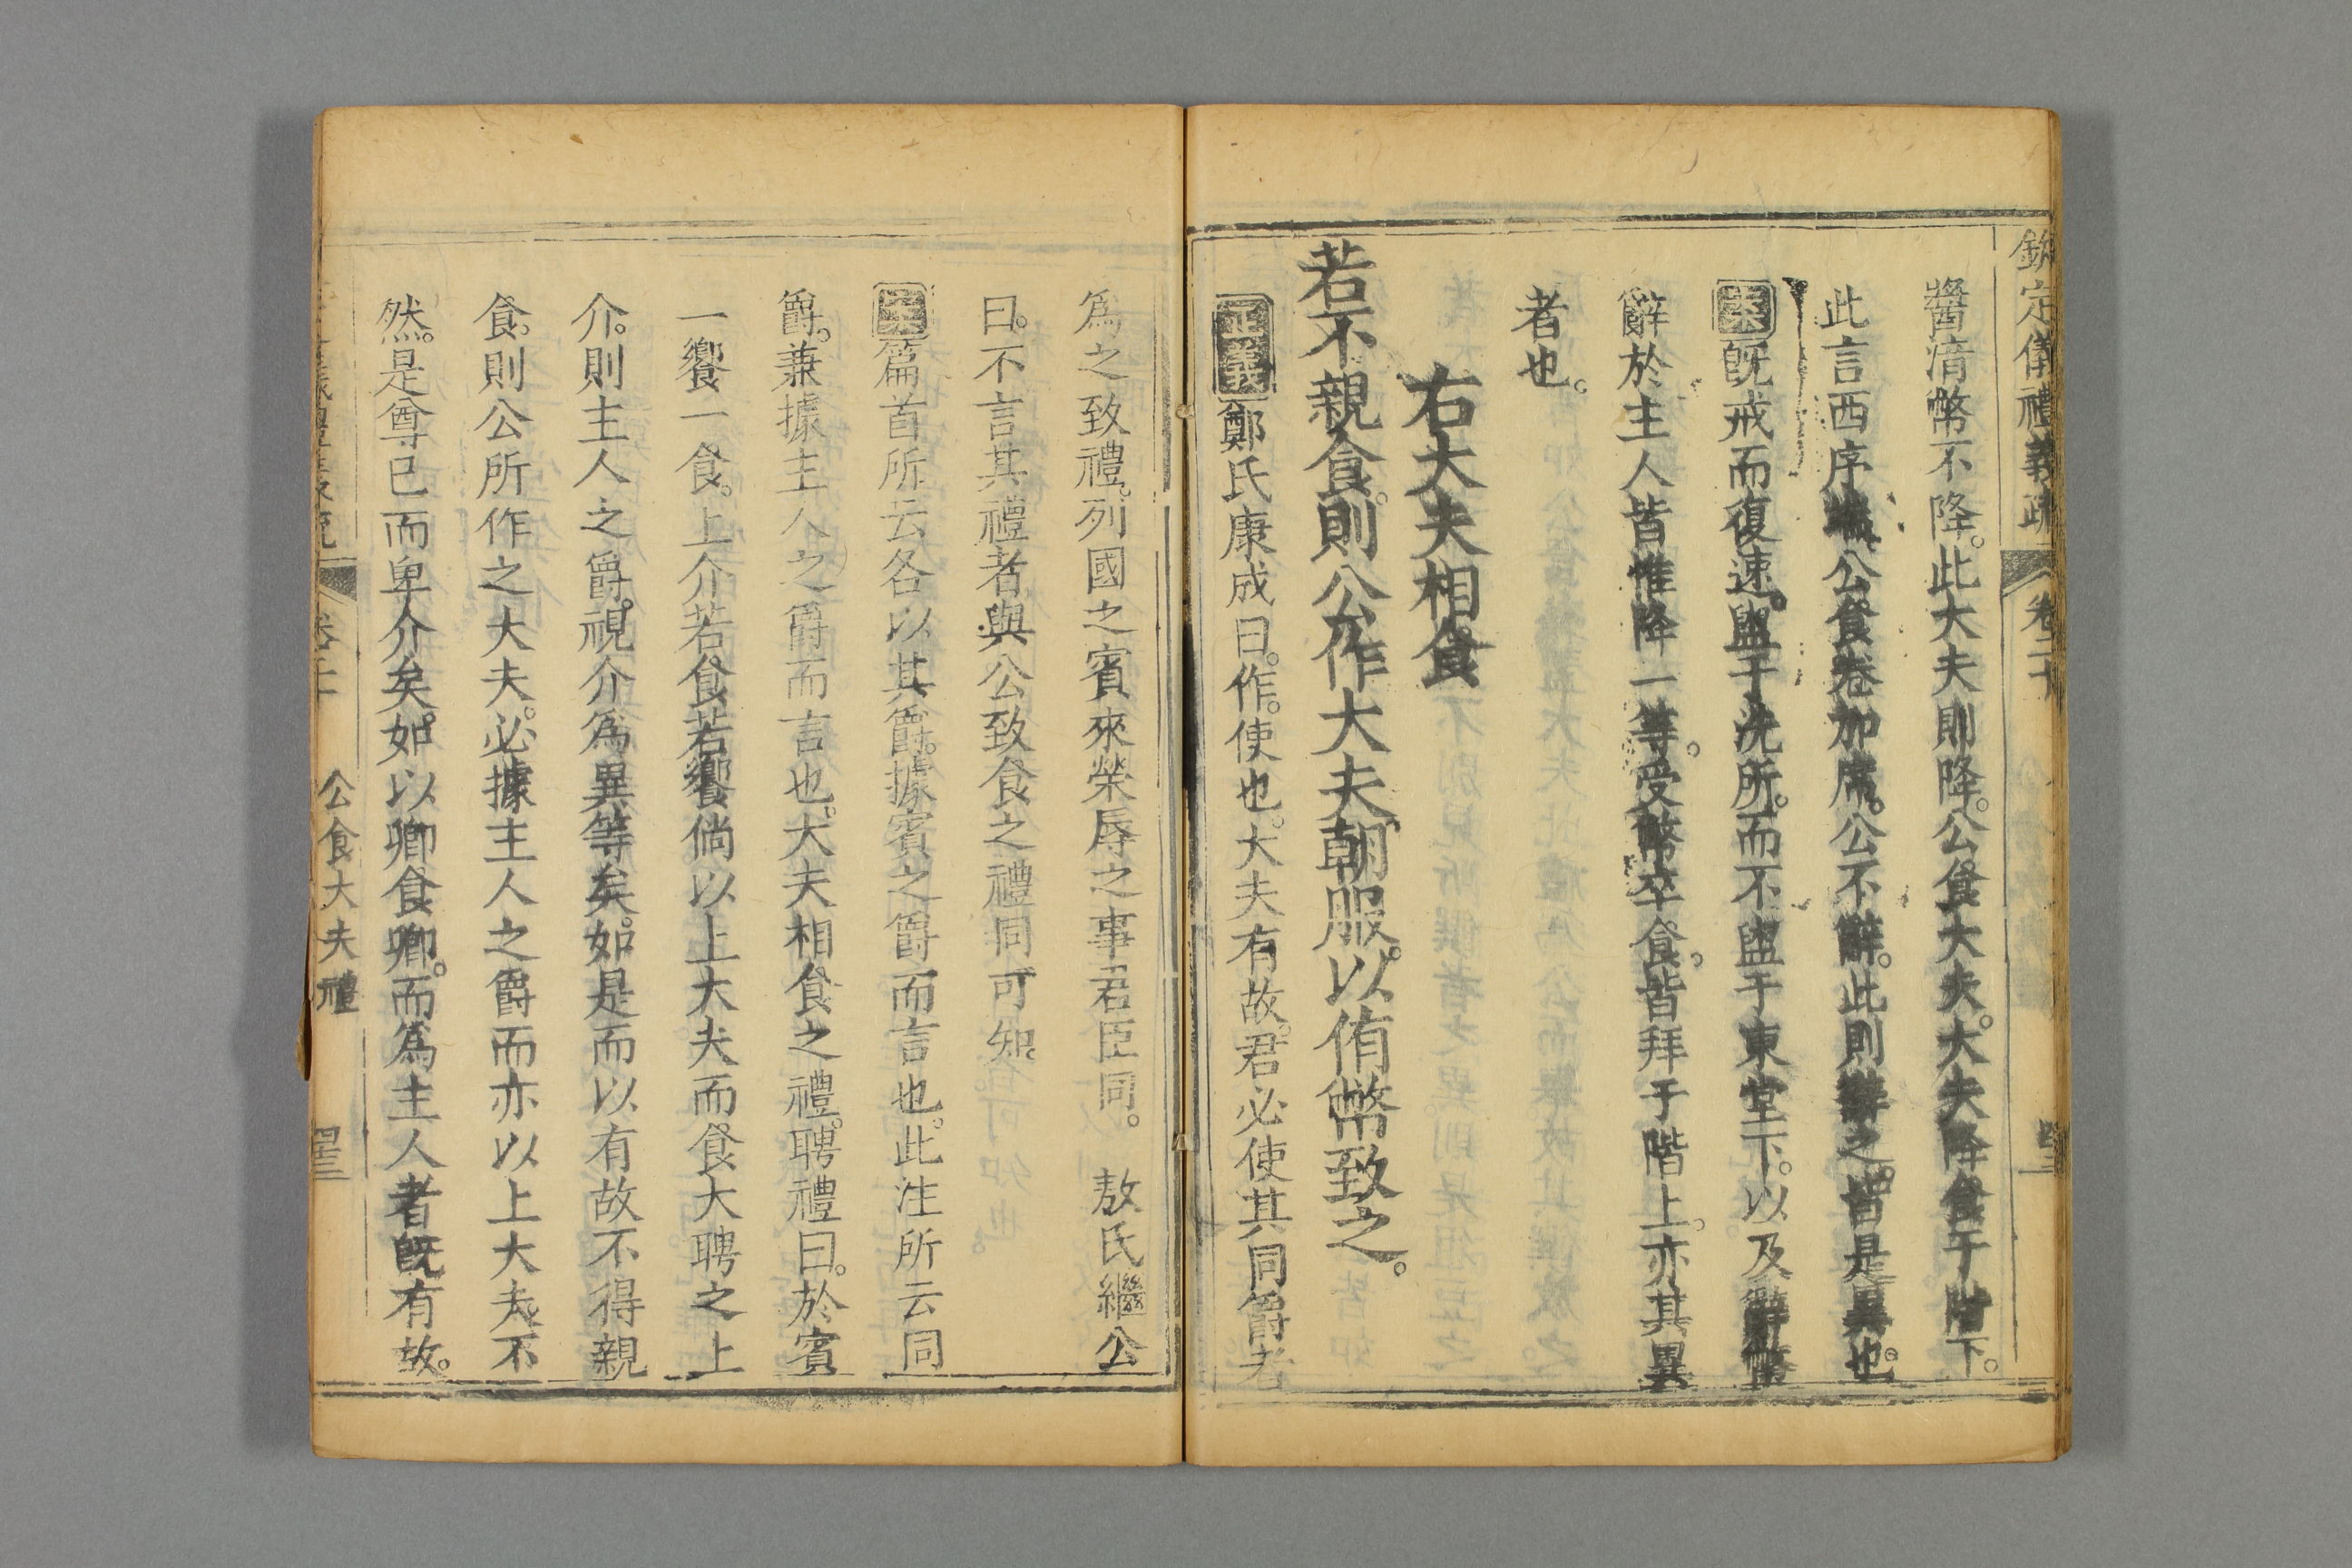 欽定儀禮義疏 卷二十
醬湆幣不降。此大夫則降。公食大夫。大夫降食于階下。
此言西序端。公食卷加席。公不辭。此則辭之。皆是異也。
案既戒而復速。盥于洗所。而不盥于東堂下。以及辭幣
辭於主人皆惟降一等。受幣卒食。皆拜于階上。亦其異
者也。
右大夫相食
若不親食。則公作大夫朝服。以侑幣致之。
正義鄭氏康成曰。作。使也。大夫有故。君必使其同爵者
為之致禮。列國之賓來。榮辱之事。君臣同。 敖氏繼公
曰。不言其禮者。與公致食之禮同可知。
案篇首所云各以其爵。據賓之爵而言也。此注所云同
爵。兼據主人之爵而言也。大夫相食之禮。聘禮曰。於賓
一饗一食。上介若食若饗。倘以上大夫而食大聘之上
介。則主人之爵。視介為異等矣。如是而以有故不得親
食。則公所作之大夫。必據主人之爵而亦以上大夫。不
然。是尊已而卑介矣。如以卿食卿。而為主人者既有故。
公食大夫禮